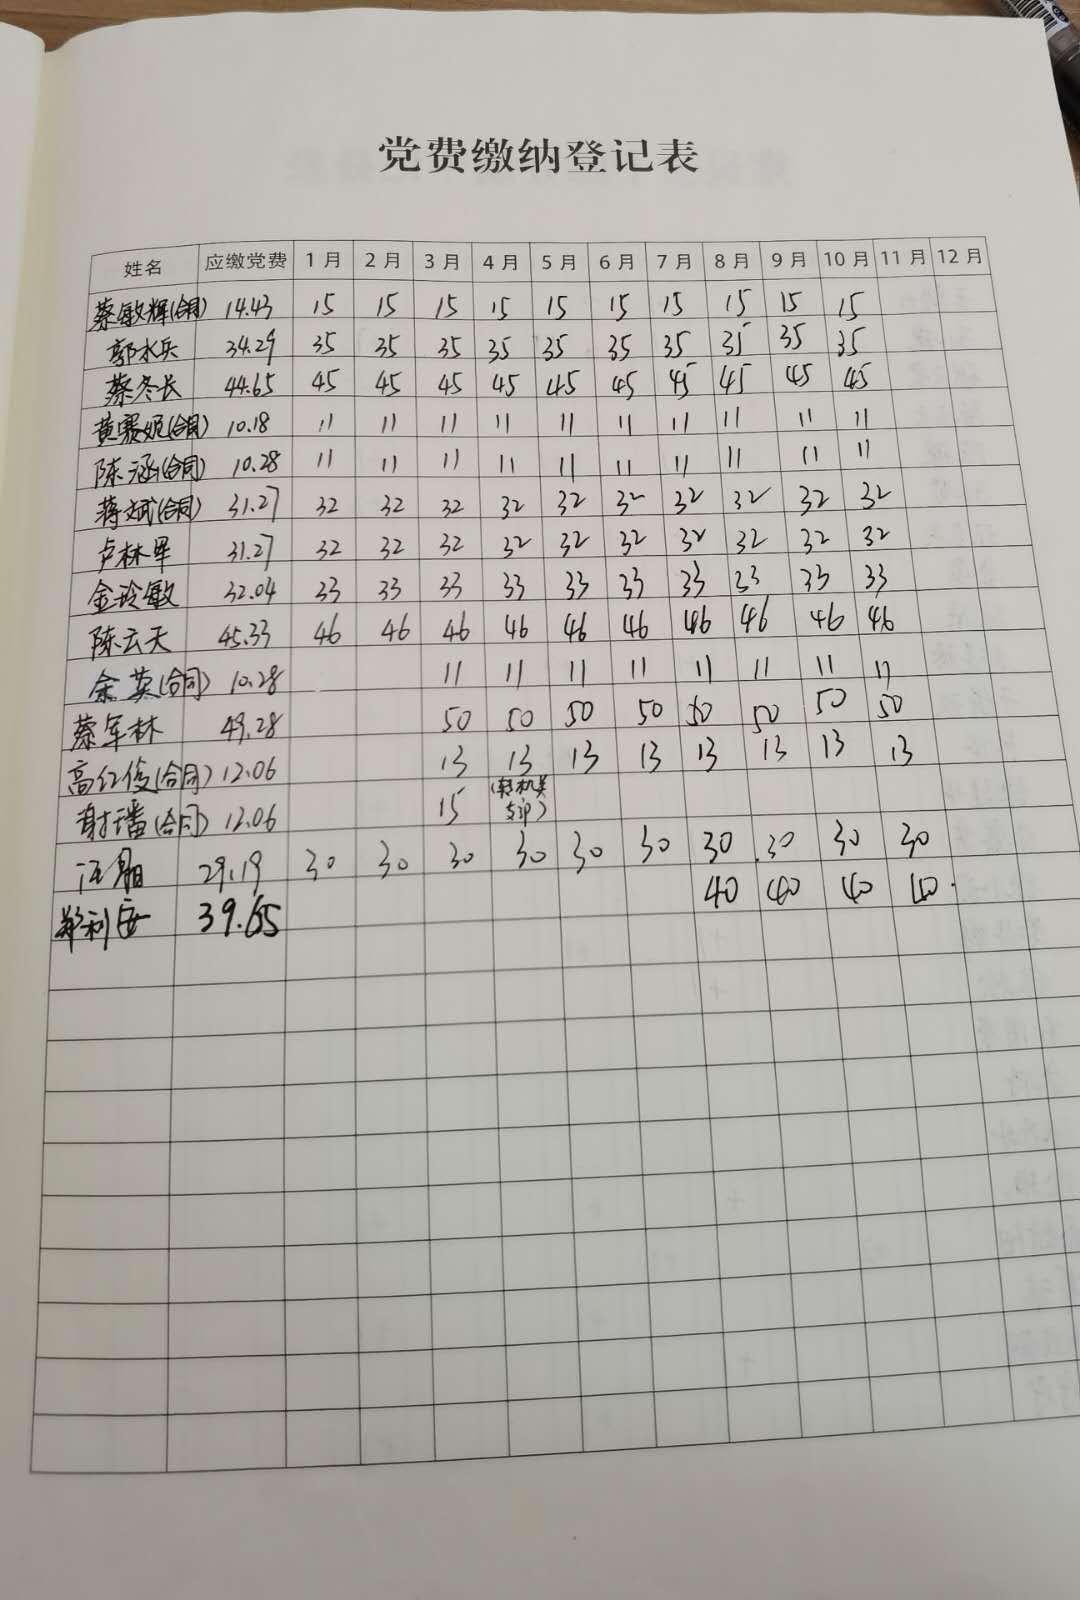 党费缴纳登记表
姓名 应缴党费 1月 2月 3月 4月 5月 6月 7月 8月 9月 10月 11月 12月
蔡敏辉(合同) 14.43 15 15 15 15 15 15 15 15 15 15
郭水兵 34.29 35 35 35 35 35 35 35 35 35 35
蔡冬长 44.65 45 45 45 45 45 45 45 45 45 45
黄赛妮(合同) 10.18 11 11 11 11 11 11 11 11 11 11
陈涵(合同) 10.28 11 11 11 11 11 11 11 11 11 11
蒋斌(合同) 31.27 32 32 32 32 32 32 32 32 32 32
卢林军 31.27 32 32 32 32 32 32 32 32 32 32
金玲敏 32.04 33 33 33 33 33 33 33 33 33 33
陈云天 45.33 46 46 46 46 46 46 46 46 46 46
余英(合同) 10.28 11 11 11 11 11 11 11 11
蔡军林 49.28 50 50 50 50 50 50 50 50
高红俊(合同) 12.06 13 13 13 13 13 13 13 13
谢璠(合同) 12.06 15 (转机关
支部)
汪 29.19 30 30 30 30 30 30 30 30 30 30
郑利 39.65 40 40 40 40